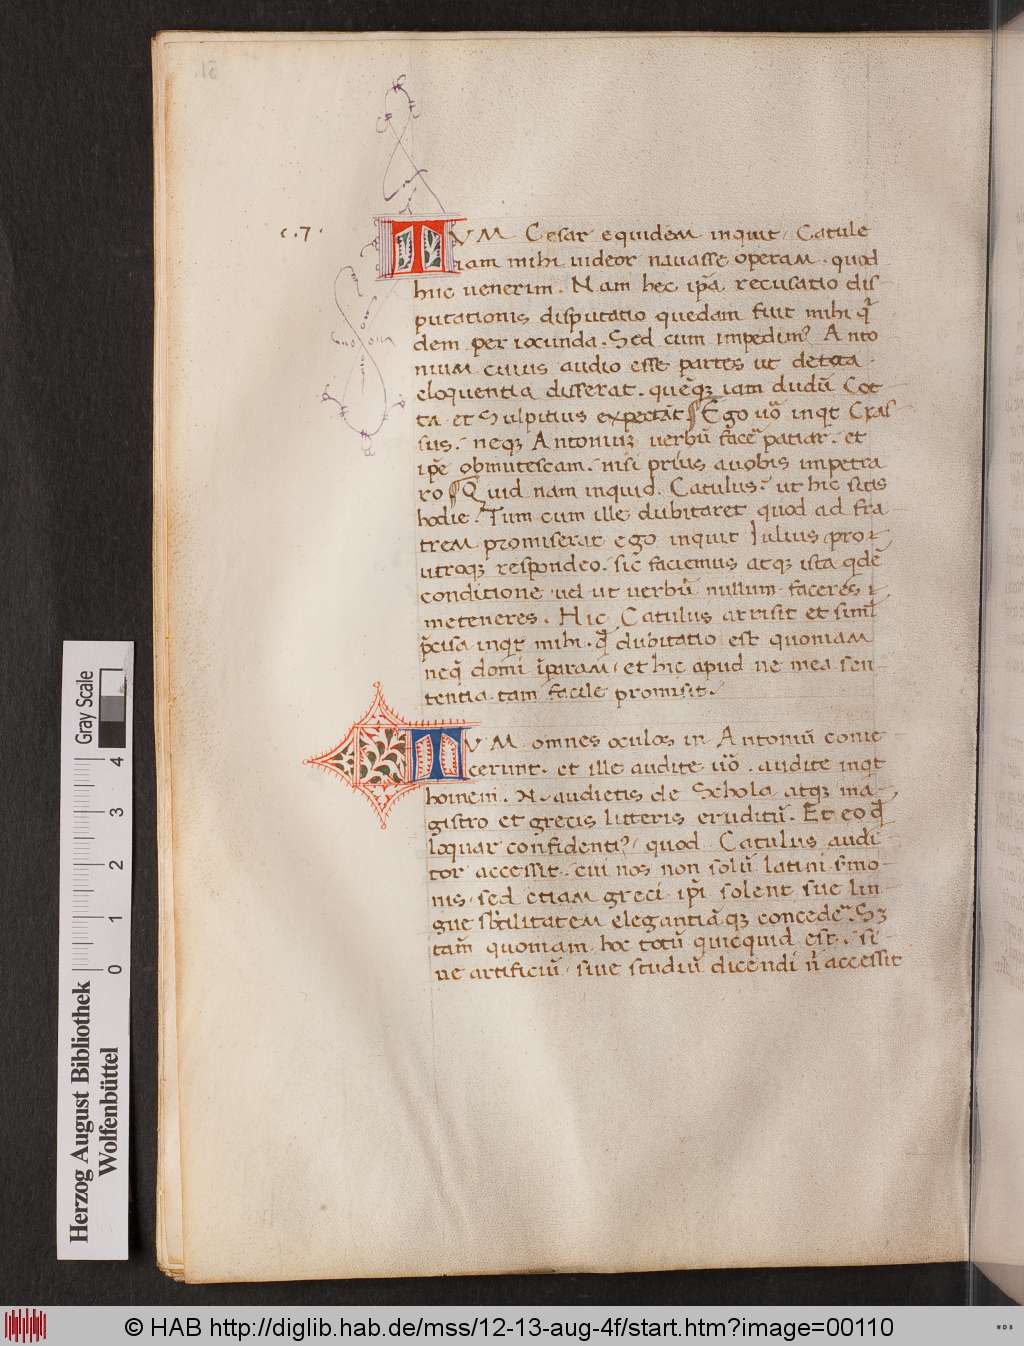 .c.7.
TVM Cesar equidem inquit / Catule
iam mihi uideor nauasse operam . quod
huc uenerim . Nam hec ip̃a recusatio dis-
putationis disputatio quedam fuit mihi q̃
dem per iocunda . Sed cum impedim᾿ Anto
nium cuius audio esse partes ut de tota
eloquentia disserat . quẽq iam dudũ Cot
ta et Sulpitius expectãt Ego uõ inqt Cras
sus . neq Antoniuʒ uerbũ facẽ patiar . et
ip̃e obmutescam . nisi prius auobis impetra
ro Quid nam inquid . Catulus . ut hic sitis
hodie . Tum cum ille dubitaret quod ad fra
trem promiserat ego inquit Iulius pro
utroq respondeo . sic faciemus atq ista qdẽ
conditione uel ut uerbũ nullum faceres
me teneres . Hic Catulus arrisit et siml̃
p̃cisa inqt mihi . q̃ dubitatio est quoniam
neq̃ domi ĩparam / et hic apud ne mea sen-
tentia tam facile promisit .
TVM omnes oculos in Antoniũ conie
cerunt . et ille audite uõ . audite inqt
hominem . N . audietis de Schola atq ma-
gistro et grecis litteris eruditũ . Et eo q̃
loquar confidenti᾿ / quod Catulus audi
tor accessit . cui nos non solũ latini s̃mo-
nis . sed etiam greci ip̃i solent sue lin-
gue sb̃tilitatem elegantiã q concedẽ . Sʒ
tam̃ quoniam hoc totũ quicquid est . si-
ue artificiũ / siue studiũ dicendi ñ accessit
Herzog August Bibliothek
Wolfenbüttel
Gray Scale
0 1 2 3 4
© HAB http://diglib.hab.de/mss/12-13-aug-4f/start.htm?image=00110